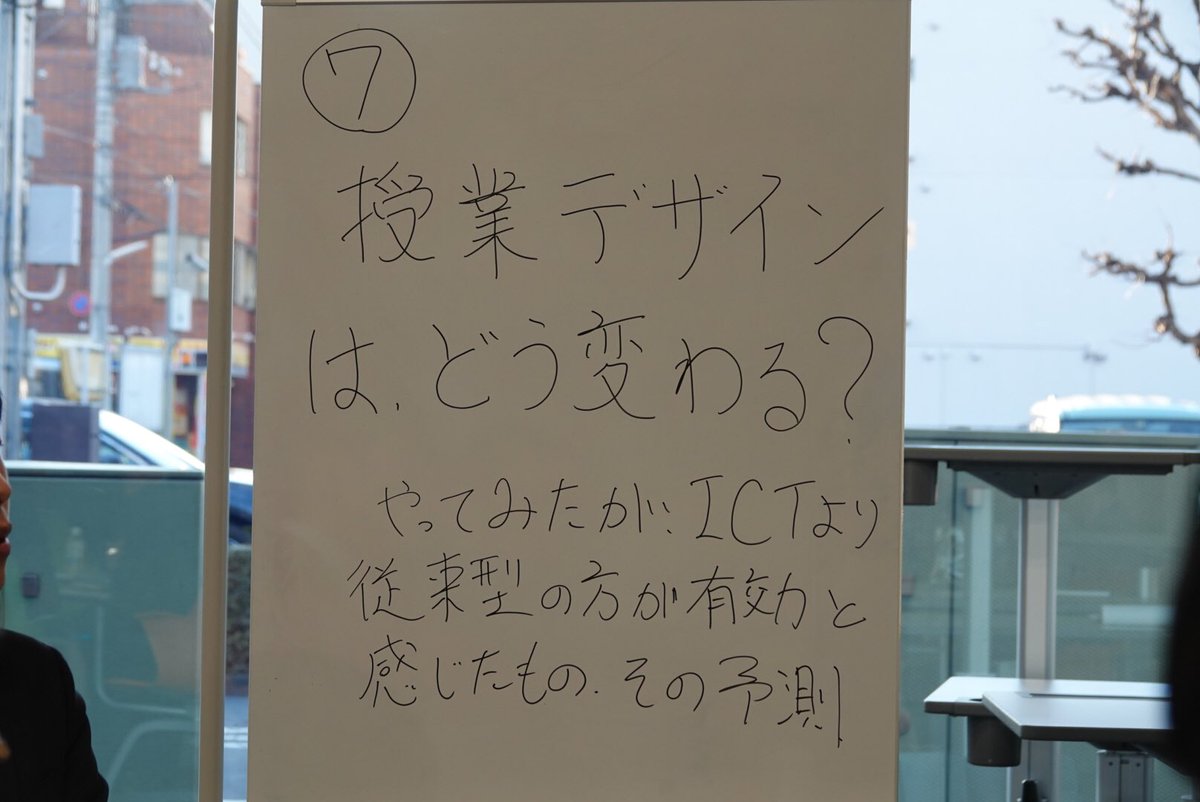 ⑦
授業デザイン
は、どう変わる?
やってみたが、ICTより
従来型の方が有効と
感じたもの、その予測